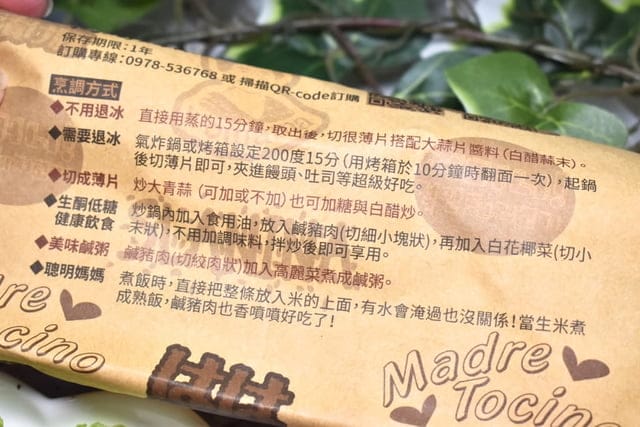 保存期限:1年
訂購專線:0978-536768 或 掃描QR-code訂購
烹調方式
◆不用退冰 直接用蒸的15分鐘,取出後,切很薄片搭配大蒜片醬料(白醋蒜末)。
◆需要退冰 氣炸鍋或烤箱設定200度15分(用烤箱於10分鐘時翻面一次),起鍋
後切薄片即可,夾進饅頭、吐司等超級好吃。
◆切成薄片 炒大青蒜(可加或不加)也可加糖與白醋炒。
◆生酮低糖 炒鍋內加入食用油,放入鹹豬肉(切細小塊狀),再加入白花椰菜(切小
健康飲食 末狀),不用加調味料,拌炒後即可享用。
◆美味鹹粥 鹹豬肉(切絞肉狀)加入高麗菜煮成鹹粥。
◆聰明媽媽 煮飯時,直接把整條放入米的上面,有水會淹過也沒關係!當生米煮
成熟飯,鹹豬肉也香噴噴好吃了!
Madre
Tocino
はは
Madre
Tocino